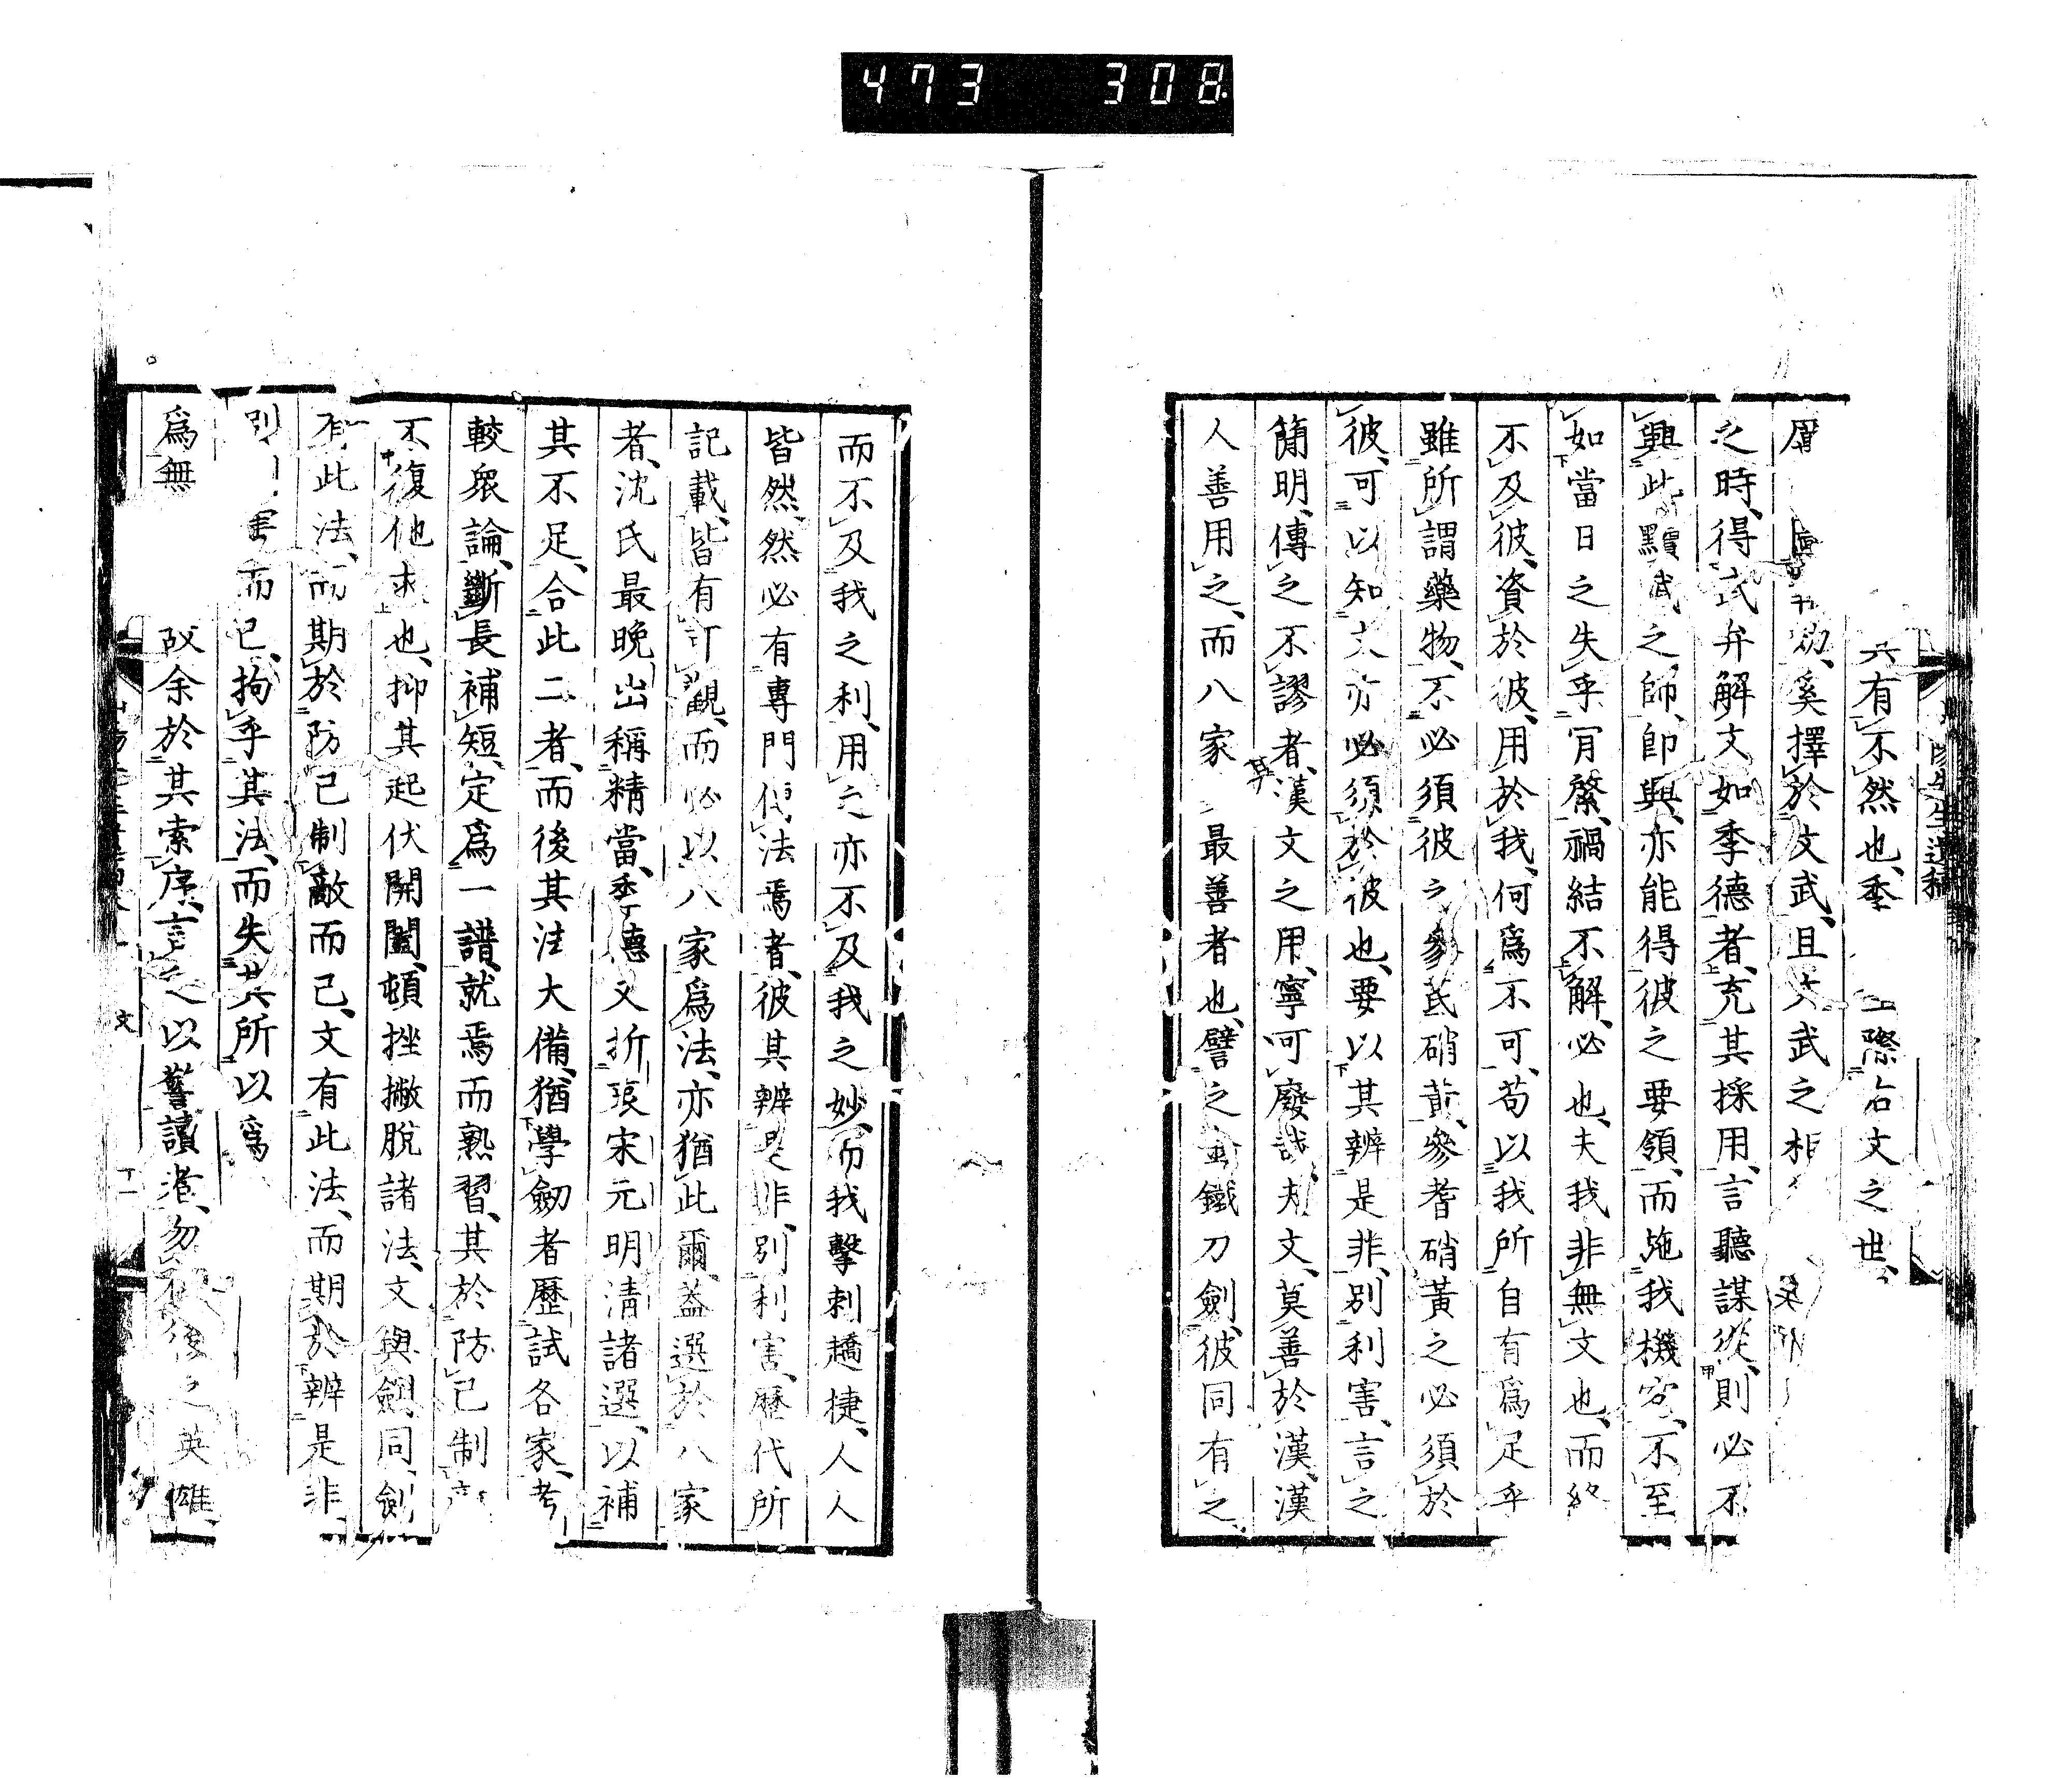 473 308
有不然也、季 際右文之世、
於文武、且文武之相
之時、得武弁解文如季德者、充其採用、言聽謀從、則必不
興此黷武之師、即興、亦能得彼之要領、而施我機宜、不至
如當日之失乎肯綮、禍結不解、必也、夫我非無文也、而終
不及彼、資於彼、用於我、何爲不可、苟以我所自有爲足乎
雖所謂藥物、不必須彼之參茋硝黃、參耆硝黃之必須於
彼、可以知文亦必須於彼也、要以其辨是非、別利害、言之
簡明、傳之不謬者、漢文之用、寧可廢哉、夫文、莫善於漢、漢
人善用之、而八家 最善者也、譬之 鐵刀劍、彼同有之、
而不及我之利、用之亦不及我之妙、而我擊刺趫捷、人人
皆然、然必有專門 法焉者、彼其辨是非、別利害、歷代所
記載、皆有可觀、而必以八家爲法、亦猶此爾、蓋選於八家
者、沈氏最晚出稱精當、季德又折衷宋元明清諸選、以補
其不足、合此二者、而後其法大備、猶學劒者歷試各家、考
較衆論、斷長補短、定爲一譜、就焉而熟習、其於防己制
不復他求也、抑其起伏開闔、頓挫撇脫諸法、文與劍同、劍
有此法、而期於防己制敵而已、文有此法、而期於辨是非
別 害而已、拘乎其法、而失其所以爲
爲無 故余於其索序、言之以警讀者、勿 後之英雄
文